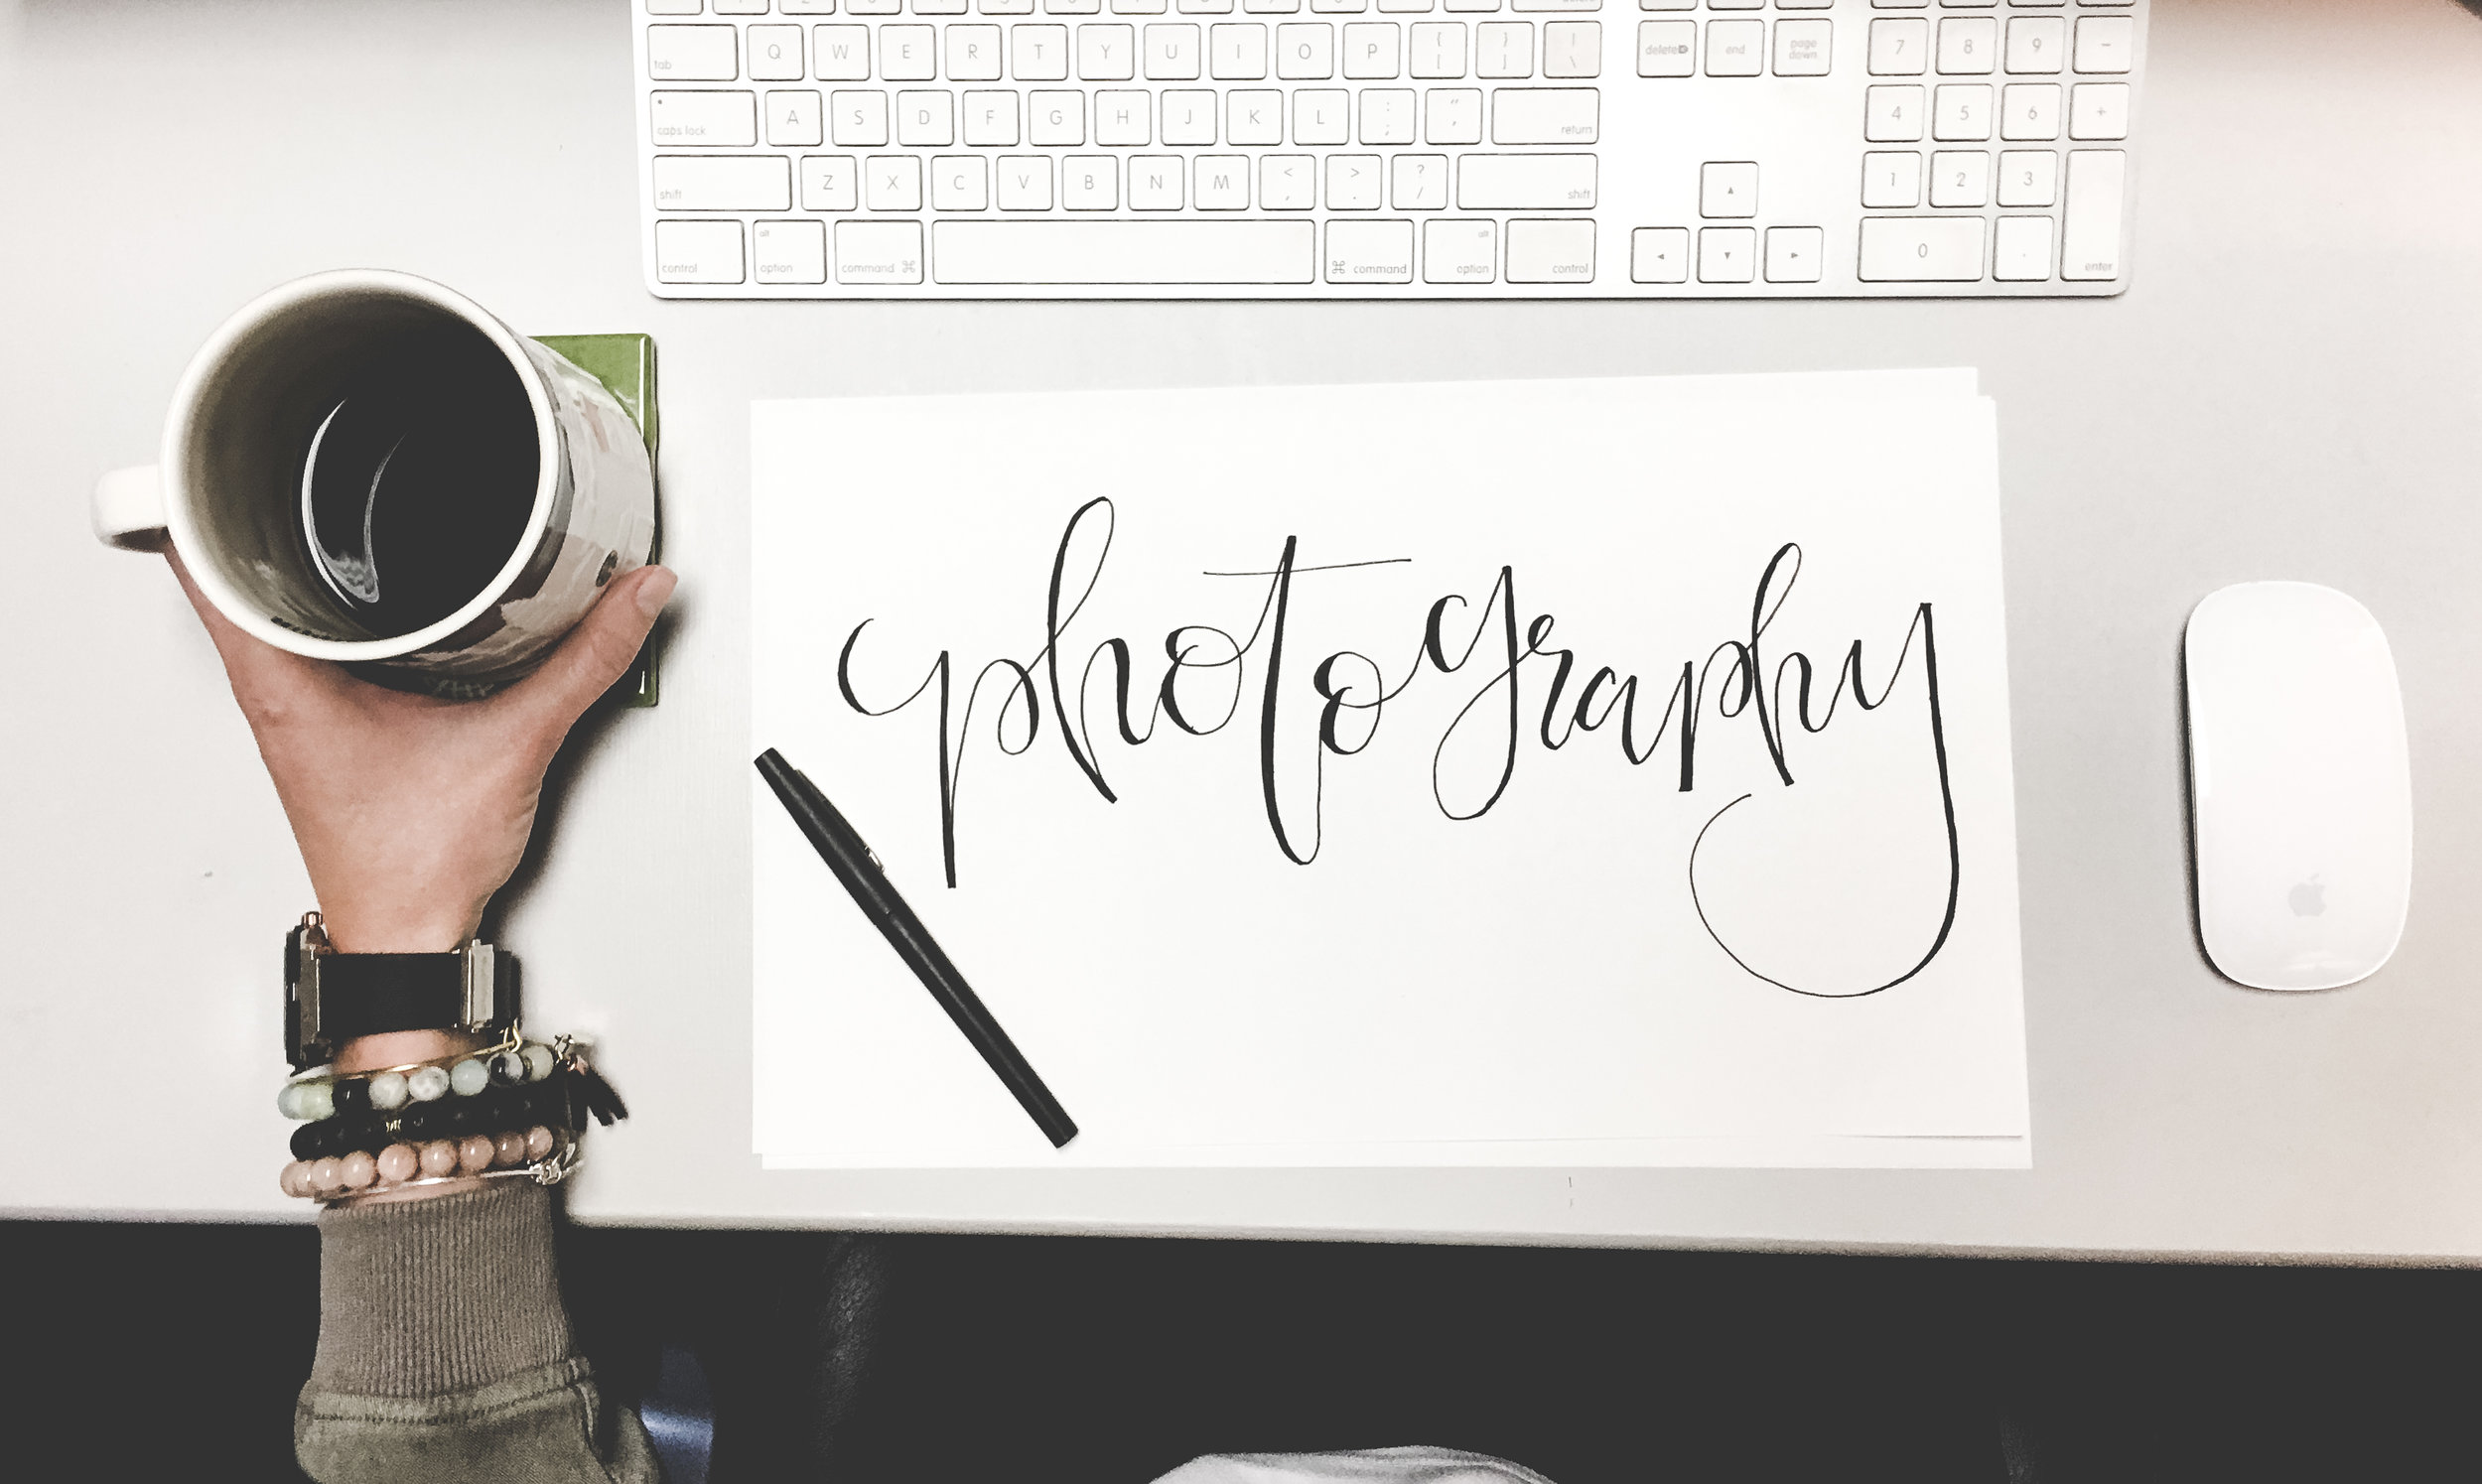 delete
tab Q W E R T Y U I O P { [ } ] | \ delete end page down 7 8 9 -
caps lock A S D F G H J K L : ; " ' return 4 5 6 +
shift Z X C V B N M < , > . ? / shift ▲ 1 2 3
control alt option command ⌘ ⌘ command alt option control ◄ ▼ ► 0 . enter
photography